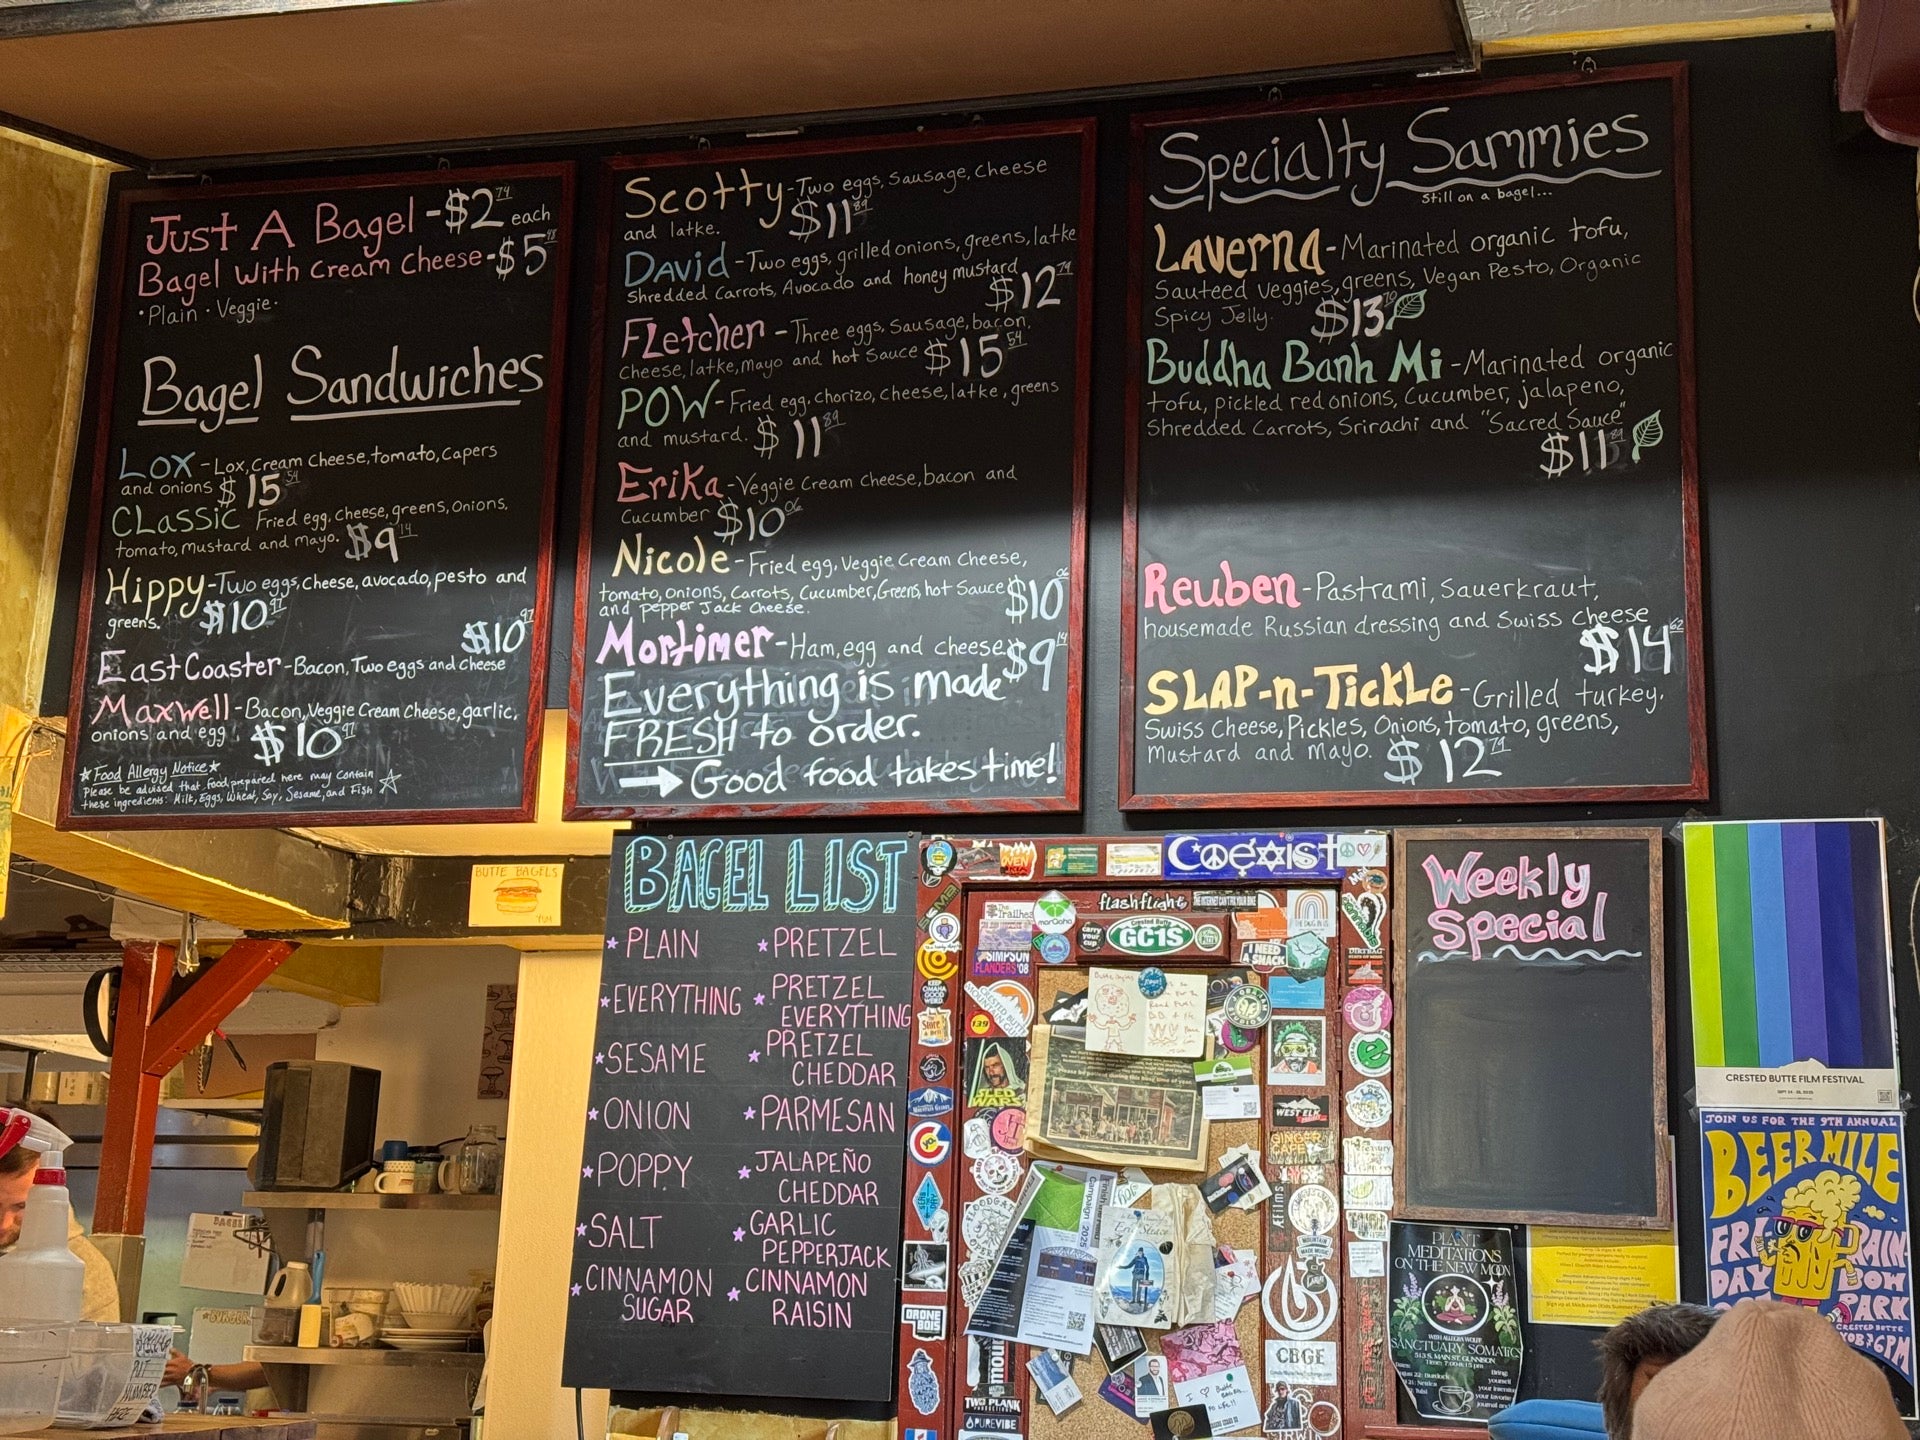 Just A Bagel - $2.74 each
Bagel with cream cheese - $5.48
• Plain • Veggie •
Bagel Sandwiches
Lox - Lox, Cream cheese, tomato, capers
and onions $15.54
Classic Fried egg, cheese, greens, onions,
tomato, mustard and mayo. $9.14
Hippy - Two eggs, cheese, avocado, pesto and
greens. $10.97
$10.97
East Coaster - Bacon, Two eggs and cheese
Maxwell - Bacon, Veggie Cream Cheese, garlic,
onions and egg. $10.97
★ Food Allergy Notice ★
Please be advised that food prepared here may contain
these ingredients: Milk, Eggs, Wheat, Soy, Sesame, and Fish
Scotty - Two eggs, Sausage, Cheese
and latke. $11.89
David - Two eggs, grilled onions, greens, latke
Shredded Carrots, Avocado and honey mustard $12.79
Fletcher - Three eggs, Sausage, bacon,
Cheese, latke, mayo and hot Sauce $15.54
POW - Fried egg, chorizo, cheese, latke, greens
and mustard. $11.89
Erika - Veggie Cream Cheese, bacon and
Cucumber $10.06
Nicole - Fried egg, Veggie Cream Cheese,
tomato, onions, Carrots, Cucumber, Greens, hot Sauce $10.06
and pepper Jack Cheese.
Mortimer - Ham, egg and cheese $9.14
Everything is made
FRESH to order.
→ Good food takes time!
Specialty Sammies
Still on a bagel...
Laverna - Marinated organic tofu,
Sauteed Veggies, greens, Vegan Pesto, Organic
Spicy Jelly. $13.70
Buddha Banh Mi - Marinated organic
tofu, pickled red onions, Cucumber, jalapeno,
Shredded Carrots, Sriracha and "Sacred Sauce"
$11.89
Reuben - Pastrami, Sauerkraut,
housemade Russian dressing and Swiss cheese
$14.62
SLAP-n-Tickle - Grilled turkey,
Swiss Cheese, Pickles, Onions, tomato, greens,
Mustard and Mayo. $12.79
BUTTE BAGELS
YUM
BAGEL LIST
★ PLAIN
★ EVERYTHING
★ SESAME
★ ONION
★ POPPY
★ SALT
★ CINNAMON
SUGAR
★ PRETZEL
★ PRETZEL
EVERYTHING
★ PRETZEL
CHEDDAR
★ PARMESAN
★ JALAPEÑO
CHEDDAR
★ GARLIC
PEPPERJACK
★ CINNAMON
RAISIN
COEXIST
flashflight
Crested Butte
GC1S
carry
your
cup
I NEED
A SNACK
SIMPSON
FLANDERS '08
KEEP
OMAHA
WEIRD
139
CRESTED BUTTE
SLED
WARS
WEST ELK
GINGER
CAFE
DRONE
BOIS
CBGE
TWO PLANK
PUREVIBE
Campaign 2025
Weekly
Special
CRESTED BUTTE FILM FESTIVAL
JOIN US FOR THE 9TH ANNUAL
BEER MILE
FRI
DAY
RAIN-
BOW
PARK
CRESTED BUTTE
PLANT
MEDITATIONS
ON THE NEW MOON
WITH ALLEGRA WOLFF
SANCTUARY SOMATICS
513 S. MAIN ST. GUNNISON